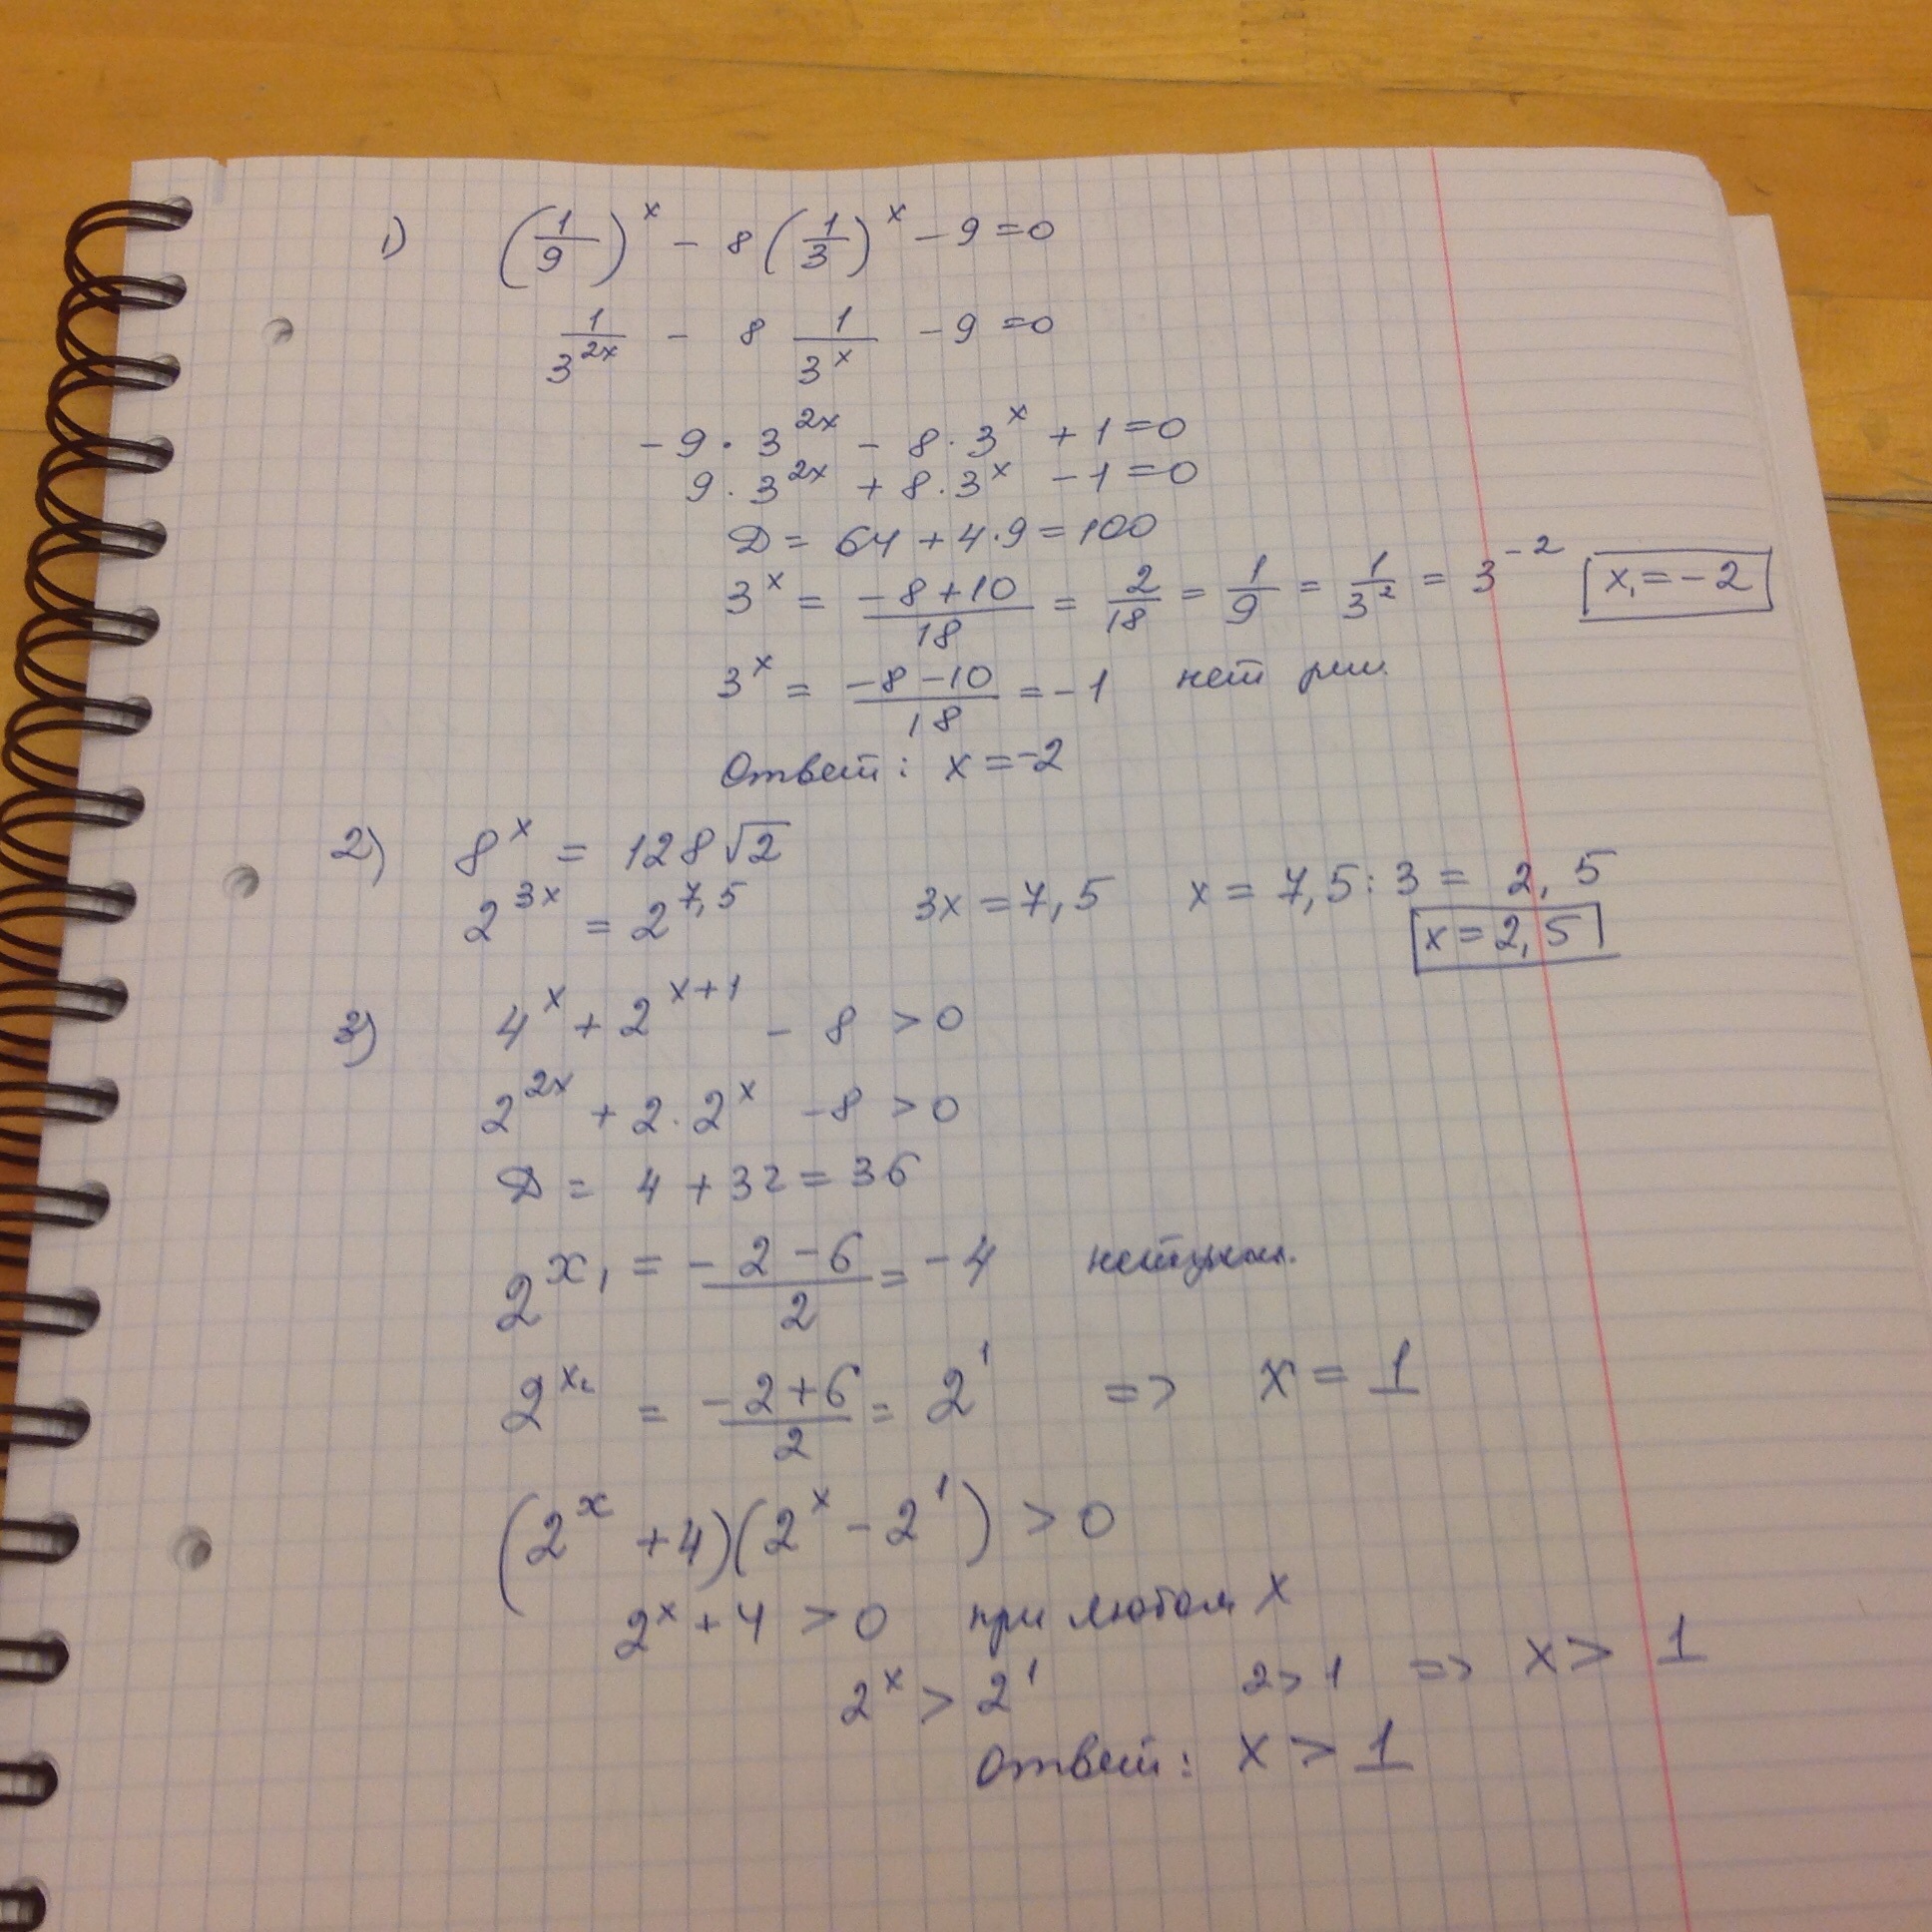 1) (1/9)^x - 8(1/3)^x - 9 = 0
1/3^2x - 8 1/3^x - 9 = 0
-9 · 3^2x - 8 · 3^x + 1 = 0
9 · 3^2x + 8 · 3^x - 1 = 0
D = 64 + 4 · 9 = 100
3^x = (-8+10)/18 = 2/18 = 1/9 = 1/3^2 = 3^-2 x₁ = -2
3^x = (-8-10)/18 = -1 нет реш.
Ответ: x = -2
2) 8^x = 128√2
2^3x = 2^7,5 3x = 7,5 x = 7,5 : 3 = 2,5
x = 2,5
3) 4^x + 2^x+1 - 8 > 0
2^2x + 2 · 2^x - 8 > 0
D = 4 + 32 = 36
2^x₁ = (-2-6)/2 = -4
2^x₂ = (-2+6)/2 = 2^1 => x = 1
(2^x + 4)(2^x - 2^1) > 0
2^x + 4 > 0 при любом x
2^x > 2^1 2 > 1 => x > 1
Ответ: x > 1